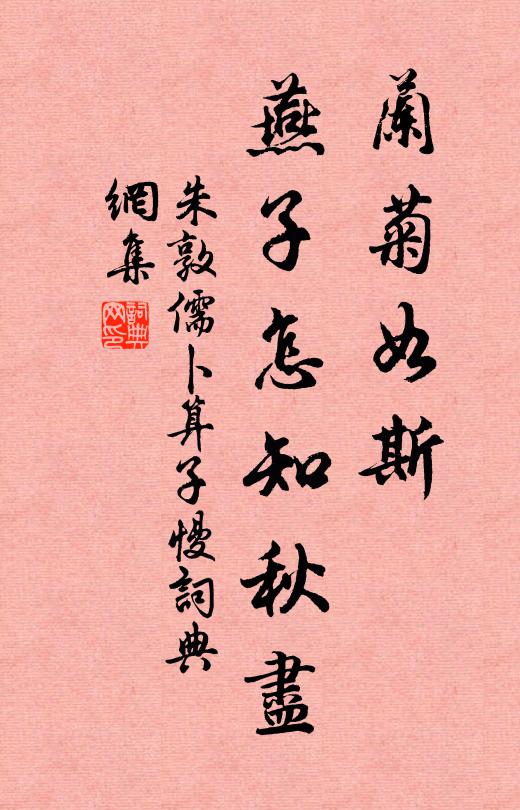 蘭菊如斯
燕子怎知秋盡
朱敦儒卜算子慢詞典
網集
詞典
网印